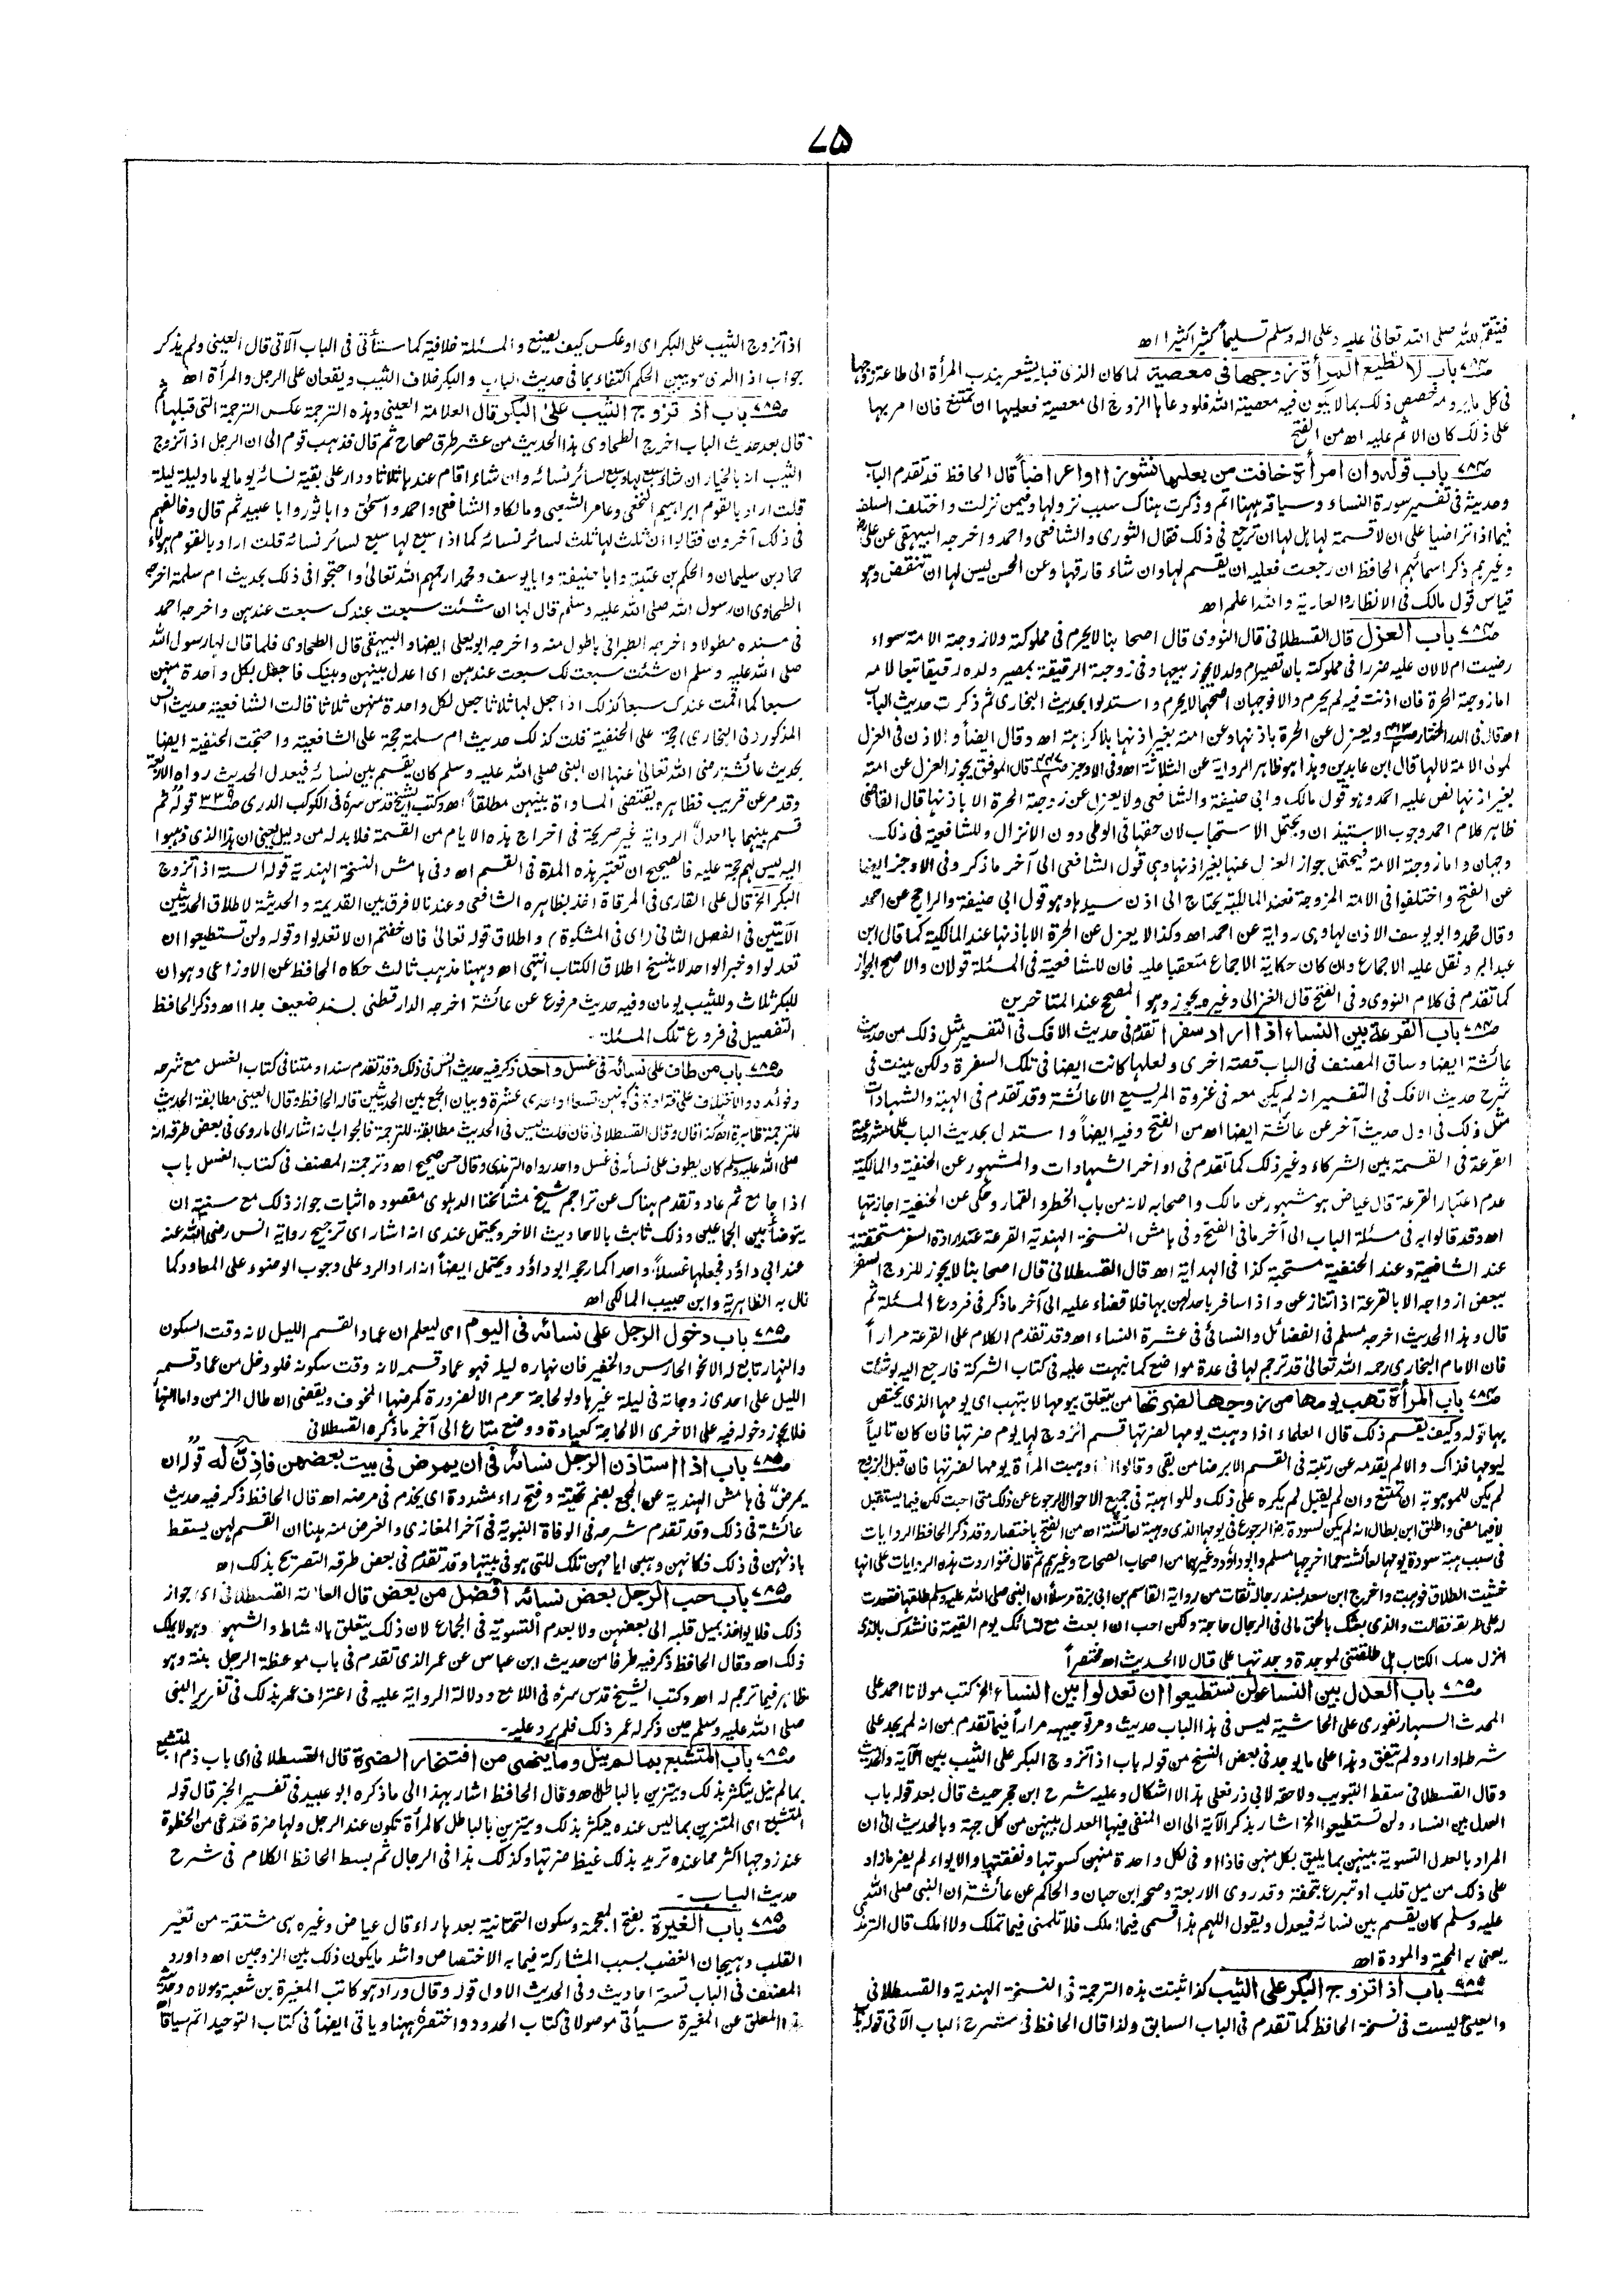 ٧٥
فينتقم لله صلى الله تعالى عليه وعلى اله وسلم تسليماً كثيرا كثيرا اھ
باب لا تطيع المرأة زوجها فى معصية لما كان الذى قبله يشعر بندب المرأة الى طاعة زوجها
فى كل ما يرومه خصص ذلك بما لا يكون فيه معصية الله فلو دعاها الزوج الى معصية فعليها ان تمتنع فان امر بها
على ذلك كان الاثم عليه اھ من الفتح
باب قوله وان امرأة خافت من بعلها نشوزا او اعراضاً قال الحافظ قد تقدم الباب
وحديثه فى تفسير سورة النساء وسياقه ههنا اتم وذكرت هناك سبب نزولها وفيمن نزلت واختلف السلف
فيما اذا تراضيا على ان لا قسمة لها هل لها ان ترجع فى ذلك فقال الثورى والشافعى واحمد واخرجه البيهقى عن على
وغيرهم ذكر اسمائهم الحافظ ان رجعت فعليه ان يقسم لها وان شاء فارقها وعن الحسن ليس لها ان تنقض وهو
قياس قول مالك فى الانظار والعارية والله اعلم اھ
باب العزل قال القسطلانى قال النووى قال اصحابنا لا يحرم فى مملوكته ولا زوجته الامة سواء
رضيت ام لا لان عليه ضررا فى مملوكته بان تصير ام ولد لا يجوز بيعها وفى زوجته الرقيقة بمصير ولده رقيقا تبعا لامه
اما زوجته الحرة فان اذنت فيه لم يحرم والا فوجهان اصحهما لا يحرم واستدلوا بحديث البخارى ثم ذكرت حديث الباب
اھ قال فى الدر المختار ويعزل عن الحرة باذنها وعن امته بغير اذنها بلا كراهة اھ وقال ايضاً والاذن فى العزل
لمولى الامة لا لها قال ابن عابدين وهذا هو ظاهر الرواية عن الثلاثة اھ وفى الاوجز قال الموفق يجوز العزل عن امته
بغير اذنها نص عليه احمد وهو قول مالك وابى حنيفة والشافعى ولا يعزل عن زوجته الحرة الا باذنها قال القاضى
ظاهر كلام احمد وجوب الاستيذان ويحتمل الاستحباب لان حقها فى الوطى دون الانزال وللشافعية فى ذلك
وجهان واما زوجته الامة فيحتمل جواز العزل عنها بغير اذنها وهى قول الشافعى الى آخر ما ذكر وفى الاوجز ايضا
عن الفتح واختلفوا فى الامة المزوجة فعند المالكية يحتاج الى اذن سيدها وهو قول ابى حنيفة والراجح عن احمد
وقال محمد وابو يوسف الاذن لها وهى رواية عن احمد اھ وكذا لا يعزل عن الحرة الا باذنها عند المالكية كما قال ابن
عبد البر ونقل عليه الاجماع وان كان حكاية الاجماع متعقبا عليه فان للشافعية فى المسئلة قولان والاصح الجواز
كما تقدم فى كلام النووى وفى الفتح قال الغزالى وغيره يجوز وهو المصحح عند المتاخرين
باب القرعة بين النساء اذا اراد سفرا تقدم فى حديث الافك فى التفسير مثل ذلك من حديث
عائشة ايضا وساق المصنف فى الباب قصة اخرى ولعلها كانت ايضا فى تلك السفرة ولكن بينت فى
شرح حديث الافك فى التفسير انه لم يكن معه فى غزوة المريسيع الا عائشة وقد تقدم فى الهبة والشهادات
مثل ذلك فى اول حديث آخر عن عائشة ايضا اھ من الفتح وفيه ايضاً واستدل بحديث الباب على مشروعية
القرعة فى القسمة بين الشركاء وغير ذلك كما تقدم فى اواخر الشهادات والمشهور عن الحنفية والمالكية
عدم اعتبار القرعة قال عياض هو مشهور عن مالك واصحابه لانه من باب الخطر والقمار وحكى عن الحنفية اجازتها
اھ وقد قالوا به فى مسئلة الباب الى آخر ما فى الفتح وفى هامش النسخة الهندية القرعة عند ارادة السفر مستحقة
عند الشافعية وعند الحنفية مستحبة كذا فى الهداية اھ قال القسطلانى قال اصحابنا لا يجوز للزوج السفر
ببعض ازواجه الا بالقرعة اذا تنازعن واذا سافر باحداهن بها فلا قضاء عليه الى آخر ما ذكر فى فروع المسئلة ثم
قال وهذا الحديث اخرجه مسلم فى الفضائل والنسائى فى عشرة النساء اھ وقد تقدم الكلام على القرعة مراراً
فان الامام البخارى رحمه الله تعالى قد ترجم لها فى عدة مواضع كما نبهت عليه فى كتاب الشركة فارجع اليه لو شئت
باب المرأة تهب يومها من زوجها لضرتها من يتعلق بيومها لا بتهب اى يومها الذى يختص
بها قوله وكيف يقسم ذلك قال العلماء اذا وهبت يومها لضرتها قسم الزوج لها يوم ضرتها فان كان تالياً
ليومها فذاك والا لم يقدمه عن رتبته فى القسم الا برضا من بقى وقالوا اذا وهبت المرأة يومها لضرتها فان قبل الزوج
لم يكن للموهوبة ان تمتنع وان لم يقبل لم يكره على ذلك وللواهبة فى جميع الاحوال الرجوع عن ذلك متى احبت لكن فيما يستقبل
لا فيما مضى واطلق ابن بطال انه لم يكن لسودة الرجوع فى يومها الذى وهبته لعائشة اھ من الفتح باختصار وقد ذكر الحافظ الروايات
فى سبب هبة سودة يومها لعائشة مما اخرجها مسلم وابو داؤد وغيرهما من اصحاب الصحاح وغيرهم ثم قال فتواردت هذه الروايات على انها
خشيت الطلاق فوهبت واخرج ابن سعد بسند رجاله ثقات من رواية القاسم بن ابى بزة مرسلا ان النبى صلى الله عليه وسلم طلقها فقعدت
له على طريقه فقالت والذى بعثك بالحق مالى فى الرجال حاجة ولكن احب ان ابعث مع نسائك يوم القيمة فانشدك بالذى
انزل عليك الكتاب هل طلقتنى لموجدة وجدتها على قال لا الحديث اھ مختصراً
باب العدل بين النساء ولن تستطيعوا ان تعدلوا بين النساء الخ كتب مولانا احمد على
المحدث السهارنفورى على الحاشية ليس فى هذا الباب حديث ومر توجيهه مراراً فيما تقدم من انه لم يجد على
شرطه او اراد ولم يتفق وهذا على ما يوجد فى بعض النسخ من قوله باب اذا تزوج البكر على الثيب بين الآية والحديث
وقال القسطلانى سقط التبويب ولاحقه لابى ذر فعلى هذا لا اشكال وعليه شرح ابن حجر حيث قال بعد قوله باب
العدل بين النساء ولن تستطيعوا الخ اشار بذكر الآية الى ان المنفى فيها العدل بينهن من كل جهة وبالحديث الى ان
المراد بالعدل التسوية بينهن بما يليق بكل منهن فاذا اوفى لكل واحدة منهن كسوتها ونفقتها والايواء لم يضر ما زاد
على ذلك من ميل قلب او تبرع بتحفة وقد روى الاربعة وصححه ابن حبان والحاكم عن عائشة ان النبى صلى الله
عليه وسلم كان يقسم بين نسائه فيعدل ويقول اللهم هذا قسمى فيما املك فلا تلمنى فيما تملك ولا املك قال الترمذى
يعنى به المحبة والمودة اھ
باب اذا تزوج البكر على الثيب كذا ثبتت هذه الترجمة فى النسخة الهندية والقسطلانى
والعينى ليست فى نسخة الحافظ كما تقدم فى الباب السابق ولذا قال الحافظ فى شرح الباب الآتى قوله باب
اذا تزوج الثيب على البكر اى او عكس كيف يصنع والمسئلة خلافية كما ستأتى فى الباب الآتى قال العينى ولم يذكر
جواب اذا الذى هو يبين الحكم اكتفاء بما فى حديث الباب والبكر خلاف الثيب ويقعان على الرجل والمرأة اھ
باب اذا تزوج الثيب على البكر قال العلامة العينى وهذه الترجمة عكس الترجمة التى قبلها ثم
قال بعد حديث الباب اخرج الطحاوى هذا الحديث من عشر طرق صحاح ثم قال فذهب قوم الى ان الرجل اذا تزوج
الثيب انه بالخيار ان شاء سبع لها وسبع لسائر نسائه وان شاء اقام عندها ثلاثا ودار على بقية نسائه يوما يوما وليلة ليلة
قلت اراد بالقوم ابراهيم النخعى وعامر الشعبى ومالكا والشافعى واحمد واسحٰق وابا ثور وابا عبيد ثم قال وخالفهم
فى ذلك آخرون فقالوا ان ثلث لها ثلث لسائر نسائه كما اذا سبع لها سبع لسائر نسائه قلت اراد بالقوم هؤلاء
حماد بن سليمان والحكم بن عتيبة وابا حنيفة وابا يوسف ومحمد ارحمهم الله تعالى واحتجوا فى ذلك بحديث ام سلمة اخرجه
الطحاوى ان رسول الله صلى الله عليه وسلم قال لها ان شئت سبعت عندك سبعت عندهن واخرجه احمد
فى مسنده مطولا واخرجه الطبرانى باطول منه واخرجه ابو يعلى ايضا والبيهقى قال الطحاوى فلما قال لها رسول الله
صلى الله عليه وسلم ان شئت سبعت لك سبعت عندهن اى اعدل بينهن وبينك فاجعل لكل واحدة منهن
سبعا كما اقمت عندك سبعا كذلك اذا جعل لها ثلاثا جعل لكل واحدة منهن ثلاثا قالت الشافعية حديث انس
المذكور (فى البخارى) حجة على الحنفية قلت كذلك حديث ام سلمة حجة على الشافعية واحتجت الحنفية ايضا
بحديث عائشة رضى الله تعالى عنها ان النبى صلى الله عليه وسلم كان يقسم بين نسائه فيعدل الحديث رواه الاربعة
وقد مر عن قريب فظاهره يقتضى المساواة بينهن مطلقاً اھ وكتب الشيخ قدس سره فى الكوكب الدرى قوله ثم
قسم بينهما بالعدل الرواية غير صريحة فى اخراج هذه الايام من القسمة فلا بد له من دليل يعنى ان هذا الذى ذهبوا
اليه ليس لهم حجة عليه فالصحيح ان تعتبر هذه المدة فى القسم اھ وفى هامش النسخة الهندية قوله السنة اذا تزوج
البكر الخ قال على القارى فى المرقاة اخذ بظاهره الشافعى وعندنا لا فرق بين القديمة والحديثة لاطلاق الحديثين
الآتيين فى الفصل الثانى (اى فى المشكوة) واطلاق قوله تعالى فان خفتم ان لا تعدلوا وقوله ولن تستطيعوا ان
تعدلوا وخبر الواحد لا ينسخ اطلاق الكتاب انتهى اھ وههنا مذهب ثالث حكاه الحافظ عن الاوزاعى وهو ان
للبكر ثلاث وللثيب يومان وفيه حديث مرفوع عن عائشة اخرجه الدارقطنى بسند ضعيف جدا اھ وذكر الحافظ
التفصيل فى فروع تلك المسئلة۔
باب من طاف على نسائه فى غسل واحد ذكر فيه حديث انس فى ذلك وقد تقدم سندا ومتنا فى كتاب الغسل مع شرحه
وفوائده والاختلاف على قتادة فى كونهن تسعا او احدى عشرة وبيان الجمع بين الحديثين قاله الحافظ وقال العينى مطابقة الحديث
للترجمة ظاهرة اھ كذا قال وقال القسطلانى فان قلت ليس فى الحديث مطابقة للترجمة فالجواب انه اشار الى ما روى فى بعض طرقه انه
صلى الله عليه وسلم كان يطوف على نسائه فى غسل واحد رواه الترمذى وقال حسن صحيح اھ وترجمة المصنف فى كتاب الغسل باب
اذا جامع ثم عاد وتقدم هناك عن تراجم شيخ مشائخنا الدهلوى مقصوده اثبات جواز ذلك مع سنية ان
يتوضأ بين الجماعين وذلك ثابت بالاحاديث الاخر ويحتمل عندى انه اشار اى ترجيح رواية انس رضى الله عنه
عند ابى داؤد فجعلها غسلاً واحدا كما رجحه ابو داؤد ويحتمل ايضاً انه اراد الرد على وجوب الوضوء على المعاود كما
قال به الظاهرية وابن حبيب المالكى اھ
باب دخول الرجل على نسائه فى اليوم اى ليعلم ان عماد القسم الليل لانه وقت السكون
والنهار تابع له الا نحو الحارس والخفير فان نهاره ليله فهو عماد قسمه لانه وقت سكونه فلو دخل من عماد قسمه
الليل على احدى زوجاته فى ليلة غيرها ولو لحاجة حرم الا لضرورة كمرضها المخوف ويقضى ان طال الزمن واما النهار
فلا يجوز دخوله فيه على الاخرى الا لحاجة كعيادة ووضع متاع الى آخر ما ذكره القسطلانى
باب اذا استاذن الرجل نسائه فى ان يمرض فى بيت بعضهن فاذن له قوله ان
يمرض فى هامش الهندية عن المجمع بضم تحتية وفتح راء مشددة اى يخدم فى مرضه اھ قال الحافظ ذكر فيه حديث
عائشة فى ذلك وقد تقدم شرحه فى الوفاة النبوية فى آخر المغازى والغرض منه ههنا ان القسم لهن يسقط
باذنهن فى ذلك فكانهن وهبن ايامهن تلك للتى هو فى بيتها وقد تقدم فى بعض طرقه التصريح بذلك اھ
باب حب الرجل بعض نسائه افضل من بعض قال العلامة القسطلانى اى جواز
ذلك فلا يواخذ بميل قلبه الى بعضهن ولا بعدم التسوية فى الجماع لان ذلك يتعلق بالنشاط والشهوة وهو لا يملك
ذلك اھ وقال الحافظ ذكر فيه طرفا من حديث ابن عباس عن عمر الذى تقدم فى باب موعظة الرجل بنته وهو
ظاهر فيما ترجم له اھ وكتب الشيخ قدس سره فى اللامع ودلالة الرواية عليه فى اعتراف عمر بذلك فى تقرير النبى
صلى الله عليه وسلم حين ذكر له عمر ذلك فلم يرد عليه۔
باب المتشبع بما لم ينل وما ينهى من افتخار الضرة قال القسطلانى اى باب ذم المتشبع
بما لم ينل يتكثر بذلك ويتزين بالباطل اھ وقال الحافظ اشار بهذا الى ما ذكره ابو عبيد فى تفسير الخبر قال قوله
المتشبع اى المتزين بما ليس عنده يتكثر بذلك ويتزين بالباطل كالمرأة تكون عند الرجل ولها ضرة فتدعى من الحظوة
عند زوجها اكثر مما عنده تريد بذلك غيظ ضرتها وكذلك هذا فى الرجال ثم بسط الحافظ الكلام فى شرح
حديث الباب۔
باب الغيرة بفتح المعجمة وسكون التحتانية بعدها راء قال عياض وغيره هى مشتقة من تغير
القلب وهيجان الغضب بسبب المشاركة فيما به الاختصاص واشد ما يكون ذلك بين الزوجين اھ واورد
المصنف فى الباب تسعة احاديث وفى الحديث الاول قوله وقال وراد هو كاتب المغيرة بن شعبة ومولاه وحديثه
هذا المعلق عن المغيرة سيأتى موصولا فى كتاب الحدود واختصره ههنا وياتى ايضاً فى كتاب التوحيد اتم سياقا